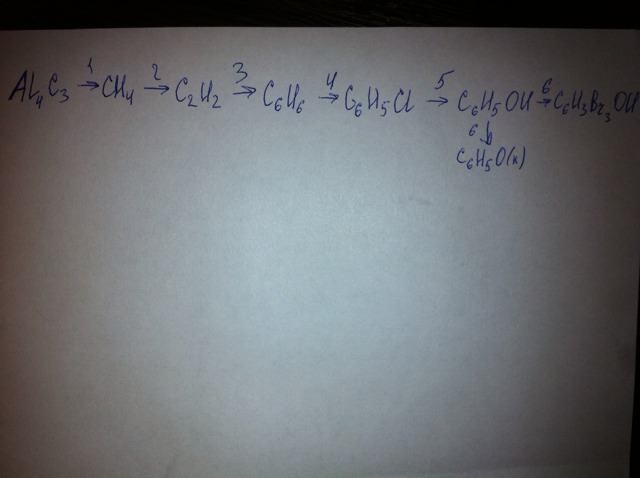 Al₄C₃ →¹ CH₄ →² C₂H₂ →³ C₆H₆ →⁴ C₆H₅Cl →⁵ C₆H₅OH →⁶ C₆H₃Br₃OH
6 ↓
C₆H₅O(K)